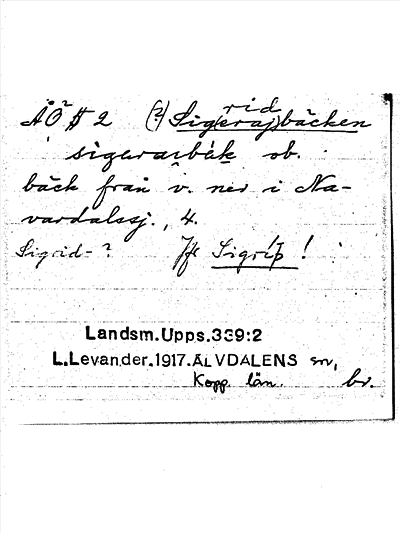 ÄÖ² § 2 (?) Sig(eraj)bäcken
rid
sigærarbäk ob.
bäck från v. ner i Na-
vardalssj., 4.
Sigrid-? Jfr Sigríþ!
Landsm.Upps.339:2
L.Levander.1917.ÄLVDALENS sn,
Kopp. län. br.